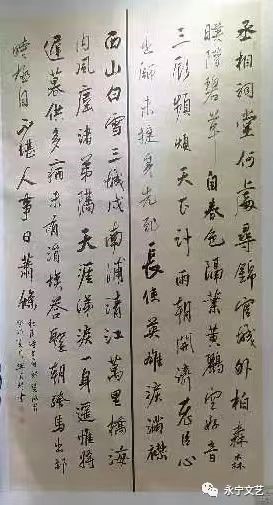 丞相祠堂何處尋錦官城外柏森森
映階碧草自春色隔葉黃鸝空好音
三顧頻煩天下計兩朝開濟老臣心
出師未捷身先死長使英雄淚滿襟
西山白雪三城戍南浦清江萬里橋海
內風塵諸弟隔天涯涕淚一身遙惟將
遲暮供多病未有涓埃答聖朝跨馬出郊
時極目不堪人事日蕭條
永宁文艺